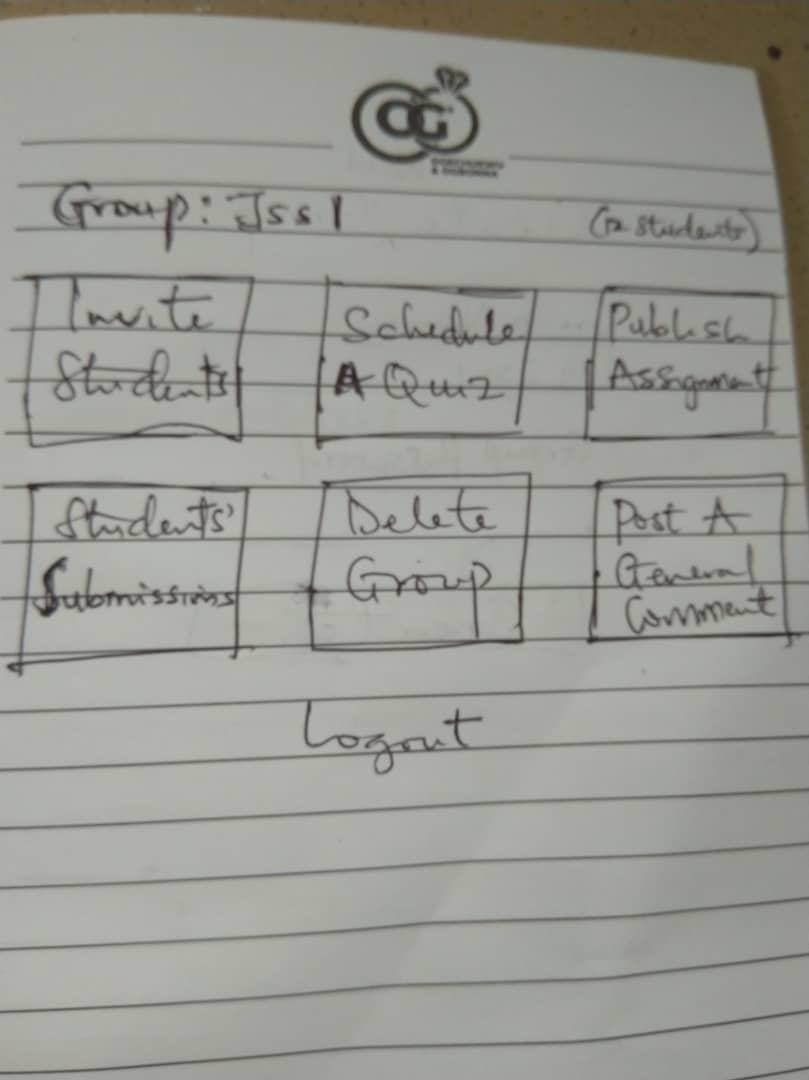 OG
Group: Jss1 (12 students)
Invite
Students
Schedule
A Quiz
Publish
Assignment
Students'
Submissions
Delete
Group
Post A
General
Comment
Logout